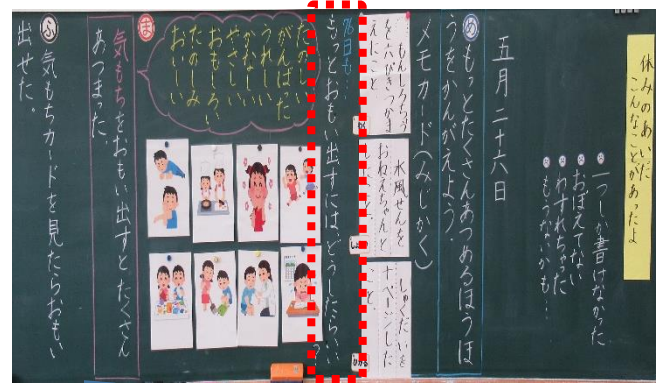 休みのあいだ
こんなことがあったよ
一つしか書けなかった
おぼえてない
わすれちゃった
もうないかも…
五月二十六日
め もっとたくさんあつめるほうほ
うをかんがえよう。
メモカード(みじかく)
もんしろちょう
を六ぴきつかま
えたこと
水風せんを
おねえちゃんと
しゅくだいを
十ページした
こと
もっとおもい出すには、どうしたらいい
たのしい
がんばった
うれしい
かなしい
やさしい
おもしろい
たのしみ
おいしい
ほ
気もちをおもい出すとたくさん
あつまった。
ふ 気もちカードを見たらおもい
出せた。